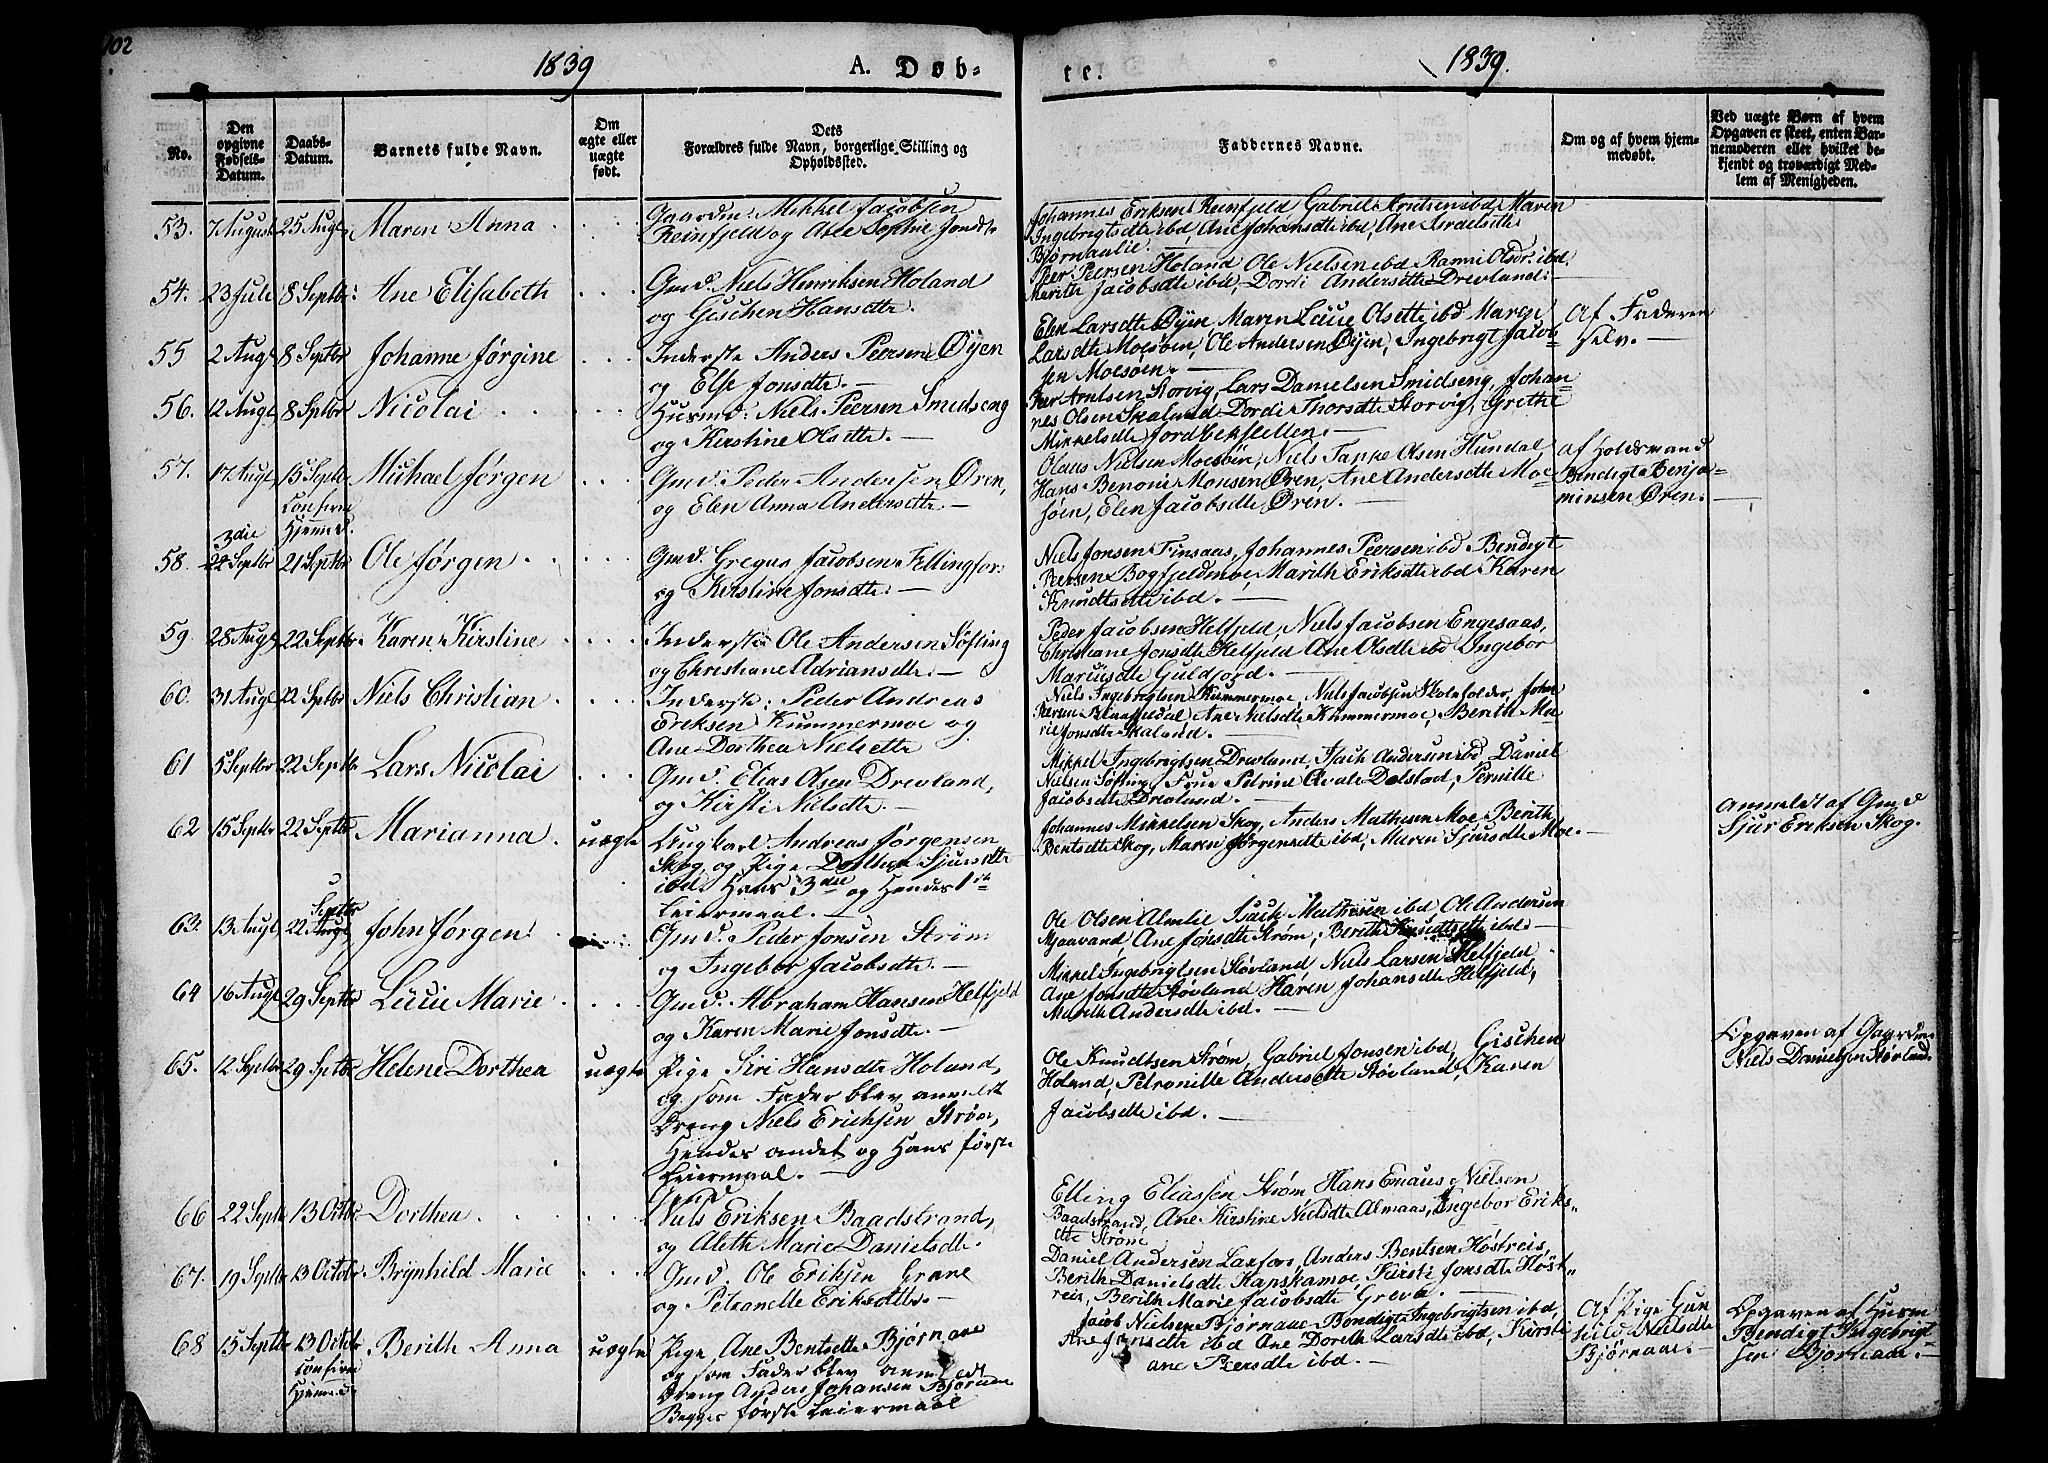 102
1839
A. Døb-
te.
1839.
No.
Den opgivne Fødsels-Datum.
Daabs-Datum.
Barnets fulde Navn.
Om ægte eller uægte født.
Dets Forældres fulde Navn, borgerlige Stilling og Opholdssted.
Faddernes Navne.
Om og af hvem hjem-
medøbt.
Ved uægte Børn af hvem
Opgaven er skeet, enten Bar-
nemoderen eller hvilket be-
kjendt og troværdigt Med-
lem af Menigheden.
53. 7 August 25 Augt Maren Anna
Gaardm: Mikkel Jacobsen
Reinfjeld og Ane Sophie Jonsdtr
Johannes Eriksen Reinfjeld Gabriel Arntsen ibd, Maren
Ingebrigtsdtr ibd, Ane Johansdtr ibd, Ane Israelsdtr
Bjørnaalie.
54. 23 Juli 8 Septbr. Ane Elisabeth
Gmd. Niels Henriksen Holand
og Gischen Hansdtr.
Peer Peersen Holand Ole Nielsen ibd Olsdr. ibd.
Marith Jacobsdtr ibd, Dordi Andersdtr Drevland.
55 2 Augt 8 Septbr Johanne Jørgine
Inderste Anders Peersen Øyen
og Else Jonsdtr.
Elen Larsdtr Øyen, Maren Lucie Olsdtr ibd Maren
Larsdtr Moesøen, Ole Andersen Øyen, Ingebrigt Jacob-
sen Moesøen.
Af Faderen
selv.
56. 12 Augt 8 Sptbr Nicolai
Husmd: Niels Peersen Smedseng
og Kirstine Olsdtr.
Peer Arntsen Storvig, Lars Danielsen Smidseng, Johan-
nes Olsen Skaland Dordi Thorsdtr Storvig, Grethe
Mikkelsdtr Jordbekstellen.
57. 17 Augt 15 Septbr Michael Jørgen
confirm
Hjemmed.
Gmd. Peder Andersen Øren,
og Elen Anna Andersdtr.
Olaus Nielsen Moesøen, Niels Tappe Olsen Hundal,
Hans Benoni Monsen Øren, Ane Andersdtr Moe-
søen, Elen Jacobsdtr Øren.
af Holdsmand
Bendigt Benja-
minsen Øren.
3die
58. Septbr 21 Septbr Ole Jørgen
Gmd. Gregus Jacobsen Fellingfors
og Kirstine Jonsdtr.
Niels Jonsen Finsaas, Johannes Peersen ibd Bendigt
Peersen Bogfjeldmoe, Marith Eriksdtr ibd Karen
Knudtsdtr ibd.
59. 28 Augt 22 Septbr. Karen Kirstine
Inderste Ole Andersen Søfting
og Christiane Adriansdtr.
Peder Jacobsen Helfjeld, Niels Jacobsen Engesaas,
Christiane Jonsdtr Helfjeld Ane Olsdtr ibd Ingebor
Marcusdtr Guldfjord.
60. 31 Augt 22 Septbr. Niels Christian
Inderste: Peder Andreas
Eriksen Kummermoe og
Ane Dorthea Nielsdtr
Niels Ingebrigtsen Kummermoe, Niels Jacobsen Skoleholder, John
Peersen Ane Nielsdtr Kummermoe, Berith Ma-
rie Jonsdtr Skaland.
61 5 Septbr 22 Septbr Lars Nicolai
Gmd. Elias Olsen Drevland,
og Kirsti Nielsdtr.
Mikkel Ingebrigtsen Drevland, Isach Andersen ibd, Daniel
Nielsen Søfting, Frue Petrine Qvale Dolstad, Pernille
Jacobsdtr Drevland.
62 15 Septbr 22 Septbr Marianna uægte
Ungkarl Andreas Jørgensen
Skog og Pige Dorthea Sjursdtr
ibd. Hans 3die og Hendes 1ste
Leiermaal.
Johannes Mikkelsen Skog, Anders Mathesen Moe, Berith
Bentsdtr Skog, Maren Jørgensdtr ibd, Maren Sjursdtr Moe.
Anmeldt af Gmd
Sjur Eriksen Skog.
Septbr
63. 13 Augt 22 Augt John Jørgen
Gmd. Peder Jonsen Strøm
og Ingebor Jacobsdtr.
Ole Olsen Almlie Isach Mathisen ibd, Ole Andersen
Mjaavand, Ane Jonsdtr Strøm, Berith Knudtsdtr ibd
64 16 Augt 29 Septbr Lucie Marie
Gmd. Abraham Hansen Helfjeld
og Karen Marie Jonsdtr.
Mikkel Ingebrigtsen Støvland Niels Larsen Helfjeld
Ane Jonsdtr Støvland Karen Johansdtr Helfjeld,
Marith Andersdtr ibd.
65. 12 Septbr 29 Sptbr Helene Dorthea uægte
Pige Siri Hansdtr Holand,
og som Fader blev anmeldt
Dreng Niels Erichsen Strøm,
Hendes andet og Hans første
Leiermaal.
Ole Knudtsen Strøm, Gabriel Jonsen ibd, Gischen
Holand, Petronille Andersdtr Støvland, Karen
Jacobsdtr ibd.
Opgaven af Gaardm
Niels Danielsen Støvland.
66 22 Septbr 13 Octbr Dorthea
Gmd
Niels Eriksen Baadstrand,
og Aleth Marie Danielsdtr.
Elling Eliassen Strøm Hans Emaus Nielsen
Baadstrand, Ane Kirstine Nielsdtr Almaas, Ingebor Eriks-
dtr Strøm
67. 19 Septbr 13 Octobr Brynhild Marie
Gmd. Ole Eriksen Grane
og Petronelle Eriksdtr.
Daniel Andersen Laxfors, Anders Bentsen Høstreis,
Berith Danielsdtr Kapskarmoe, Kirsti Jonsdtr Høst-
reis, Berith Marie Jacobsdtr Greva.
68 15 Septbr 13 Octobr Berith Anna uægte
confirm
Hjemmed.
Pige, Ane Bentsdtr Bjørnaae
og som Fader blev anmeldt
Dreng Anders Johansen Bjørnaae
Begges første Leiermaal
Jacob Nielsen Bjørnaae Bendigt Ingebrigtsen ibd,
Ane Jonsdtr ibd Ane Doreth Larsdtr ibd, Kirsti
ane Peersdtr ibd.
Af Pige Gun
hild Nielsdtr
Bjørnaae.
Opgaven af Husm
Bendigt Ingebrigt-
sen Bjørnaae.